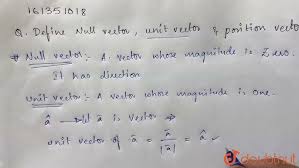 161351018
Q. Define Null vector, unit vector & position vecto
# Null vector:- A vector whose magnitude is Zero.
It has direction
Unit vector:- A vector whose magnitude is one.
â → ā is vector
unit vector of ā = ā / |ā| = â
doubtnut